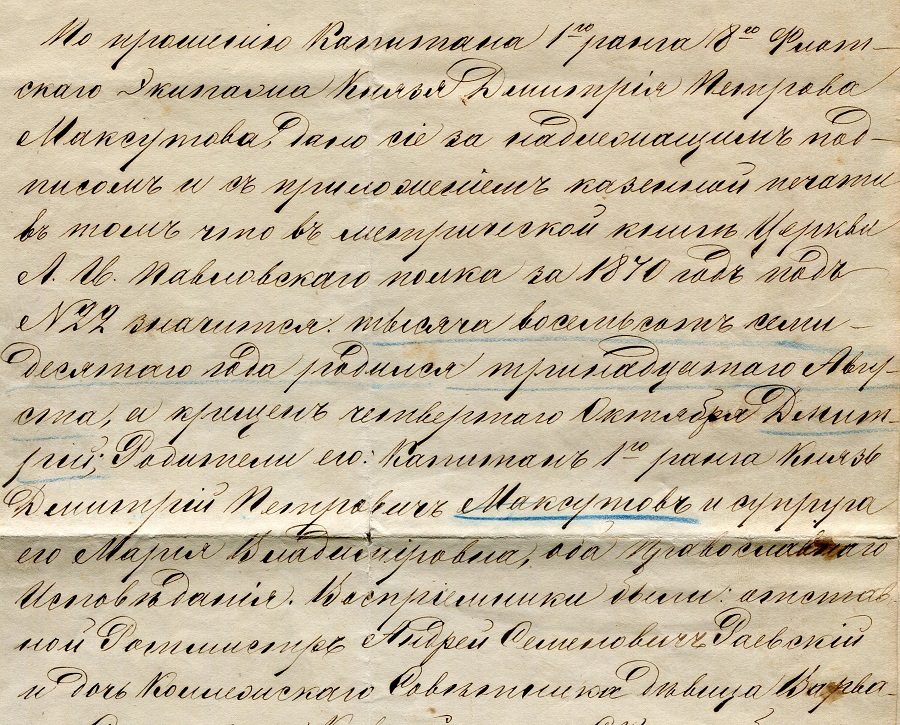 По прошенію Капитана 1го ранга 8го Флот-
скаго Экипажа Князя Дмитрія Петрова
Максутова, дано сіе за надлежащимъ под-
писомъ и съ приложеніемъ казенной печати
въ томъ что въ метрической книгѣ Церкви
Л. Гв. Павловскаго полка за 1870 годъ подъ
№22 значится: тысяча восемьсотъ семи-
десятаго года родился тринадцатаго Авгу-
ста, а крещенъ четвертаго Октября Дмит-
рій; Родители его: Капитанъ 1го ранга Князь
Дмитрій Петровичъ Максутовъ и супруга
его Марія Владиміровна, оба православнаго
Исповѣданія. Воспріемники были: отстав-
ной Ротмистръ Андрей Семеновичъ Раевскій
и дочь Коллежскаго Совѣтника дѣвица Варва-